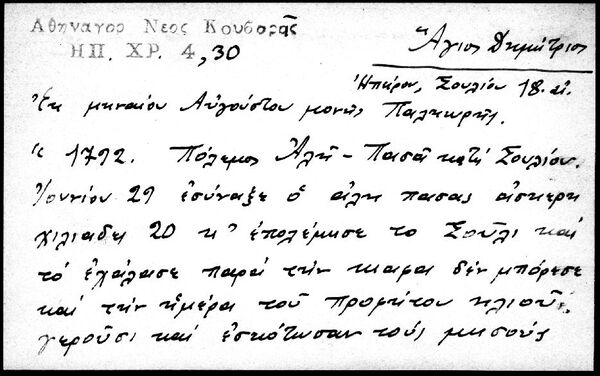 Αθηναγορ Νεος Κουβαρᾶς
ΗΠ. ΧΡ. 4,30
Ἅγιος Δημήτριος
Ἠπείρου, Σουλίου 18. αἰ.
Ἐκ μηναίου Αὐγούστου μονῆς Παληωρῆς.
« 1792. Πόλεμος Ἀλῆ-Πασᾶ κατά Σουλίου.
Ἰουνίου 29 ἐσύναξε ὁ ἀλη πασας ἀσκερη
χιλιαδες 20 κ' ἐπολέμισε το Σοῦλι καί
τό ἐχάλασε παρά τήν καιρα δέν μπόρεσε
καί τήν ἡμέρα τοῦ προφήτου ηλιοῦ,
γεροῦσι καί ἐσκότωσαν τούς μησούς